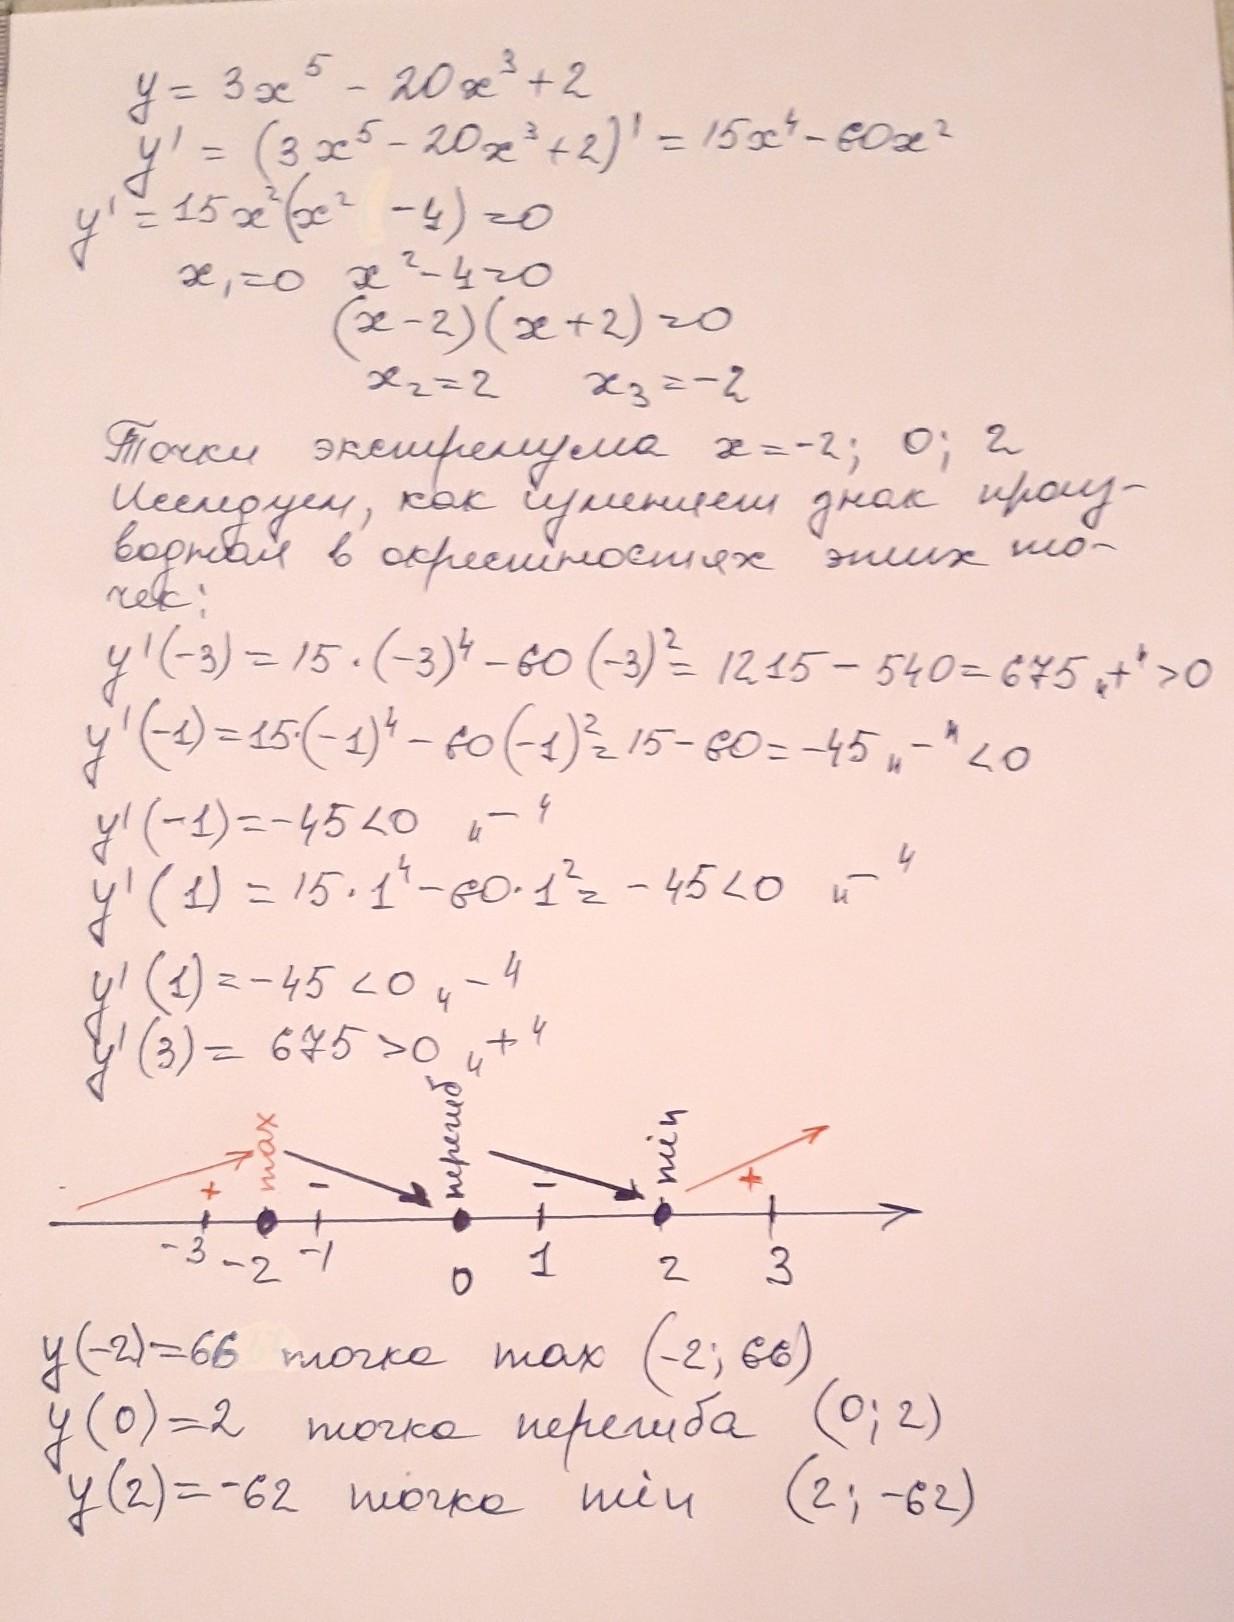 y = 3x⁵ - 20x³ + 2
y' = (3x⁵ - 20x³ + 2)' = 15x⁴ - 60x²
y' = 15x²(x² - 4) = 0
x₁ = 0 x² - 4 = 0
(x - 2)(x + 2) = 0
x₂ = 2 x₃ = -2
Точки экстремума x = -2; 0; 2
Исследуем, как изменяет знак произ-
водная в окрестностях этих то-
чек:
y'(-3) = 15·(-3)⁴ - 60(-3)² = 1215 - 540 = 675 „+" > 0
y'(-1) = 15·(-1)⁴ - 60(-1)² = 15 - 60 = -45 „-" < 0
y'(-1) = -45 < 0 „-"
y'(1) = 15·1⁴ - 60·1² = -45 < 0 „-"
y'(1) = -45 < 0 „-"
y'(3) = 675 > 0 „+"
max перегиб min
+ - - +
-3 -2 -1 0 1 2 3
y(-2) = 66 точка max (-2; 66)
y(0) = 2 точка перегиба (0; 2)
y(2) = -62 точка min (2; -62)